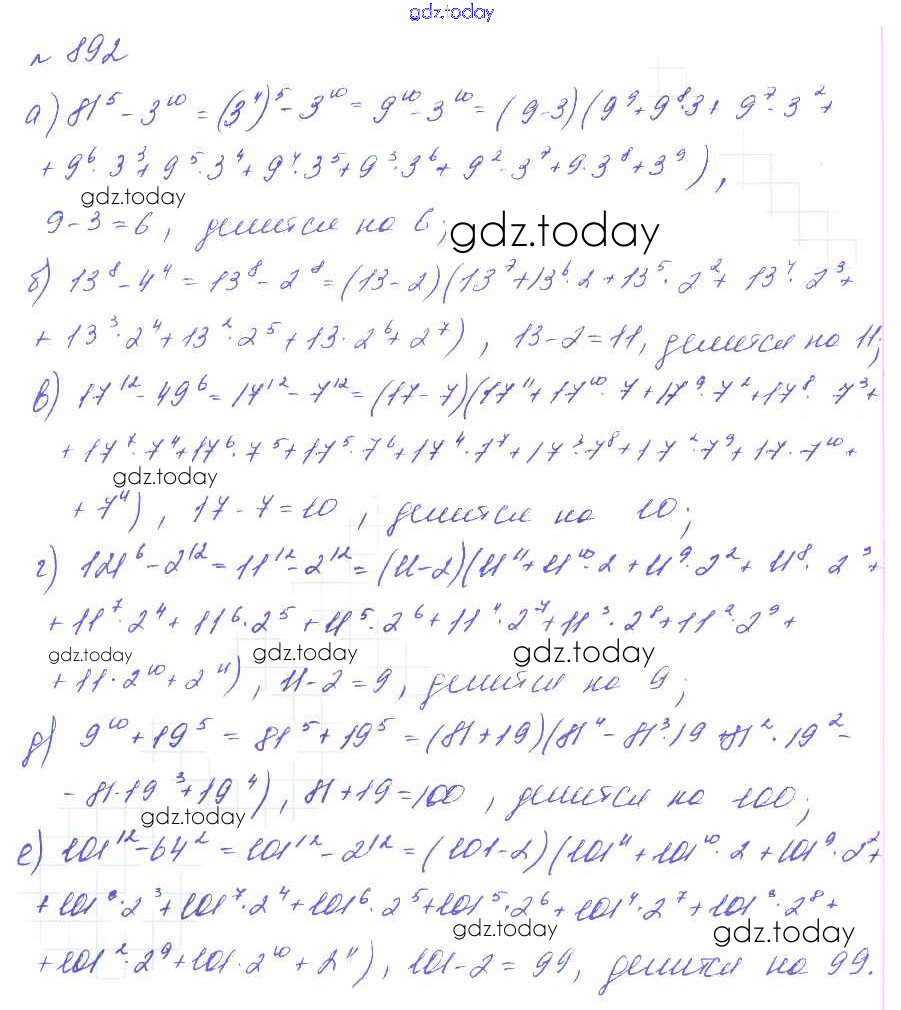 gdz.today
№ 892
а) 81⁵ - 3¹⁰ = (3⁴)⁵ - 3¹⁰ = 9¹⁰ - 3¹⁰ = (9-3)(9⁹ + 9⁸·3 + 9⁷·3² +
+ 9⁶·3³ + 9⁵·3⁴ + 9⁴·3⁵ + 9³·3⁶ + 9²·3⁷ + 9·3⁸ + 3⁹),
gdz.today
9-3=6, делится на 6;
gdz.today
б) 13⁸ - 4⁴ = 13⁸ - 2⁸ = (13-2)(13⁷ + 13⁶·2 + 13⁵·2² + 13⁴·2³ +
+ 13³·2⁴ + 13²·2⁵ + 13·2⁶ + 2⁷), 13-2=11, делится на 11;
в) 17¹² - 49⁶ = 17¹² - 7¹² = (17-7)(17¹¹ + 17¹⁰·7 + 17⁹·7² + 17⁸·7³ +
+ 17⁷·7⁴ + 17⁶·7⁵ + 17⁵·7⁶ + 17⁴·7⁷ + 17³·7⁸ + 17²·7⁹ + 17·7¹⁰ +
gdz.today
+ 7¹¹), 17-7=10, делится на 10;
г) 121⁶ - 2¹² = 11¹² - 2¹² = (11-2)(11¹¹ + 11¹⁰·2 + 11⁹·2² + 11⁸·2³ +
+ 11⁷·2⁴ + 11⁶·2⁵ + 11⁵·2⁶ + 11⁴·2⁷ + 11³·2⁸ + 11²·2⁹ +
gdz.today
gdz.today
gdz.today
+ 11·2¹⁰ + 2¹¹), 11-2=9, делится на 9;
д) 9¹⁰ + 19⁵ = 81⁵ + 19⁵ = (81+19)(81⁴ - 81³·19 + 81²·19² -
- 81·19³ + 19⁴), 81+19=100, делится на 100;
gdz.today
е) 101¹² - 64² = 101¹² - 2¹² = (101-2)(101¹¹ + 101¹⁰·2 + 101⁹·2² +
+ 101⁸·2³ + 101⁷·2⁴ + 101⁶·2⁵ + 101⁵·2⁶ + 101⁴·2⁷ + 101³·2⁸ +
gdz.today
gdz.today
+ 101²·2⁹ + 101·2¹⁰ + 2¹¹), 101-2=99, делится на 99.